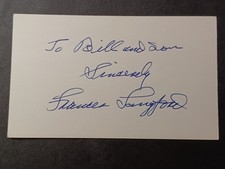 To Bill and
Sincerely
Frances Langford